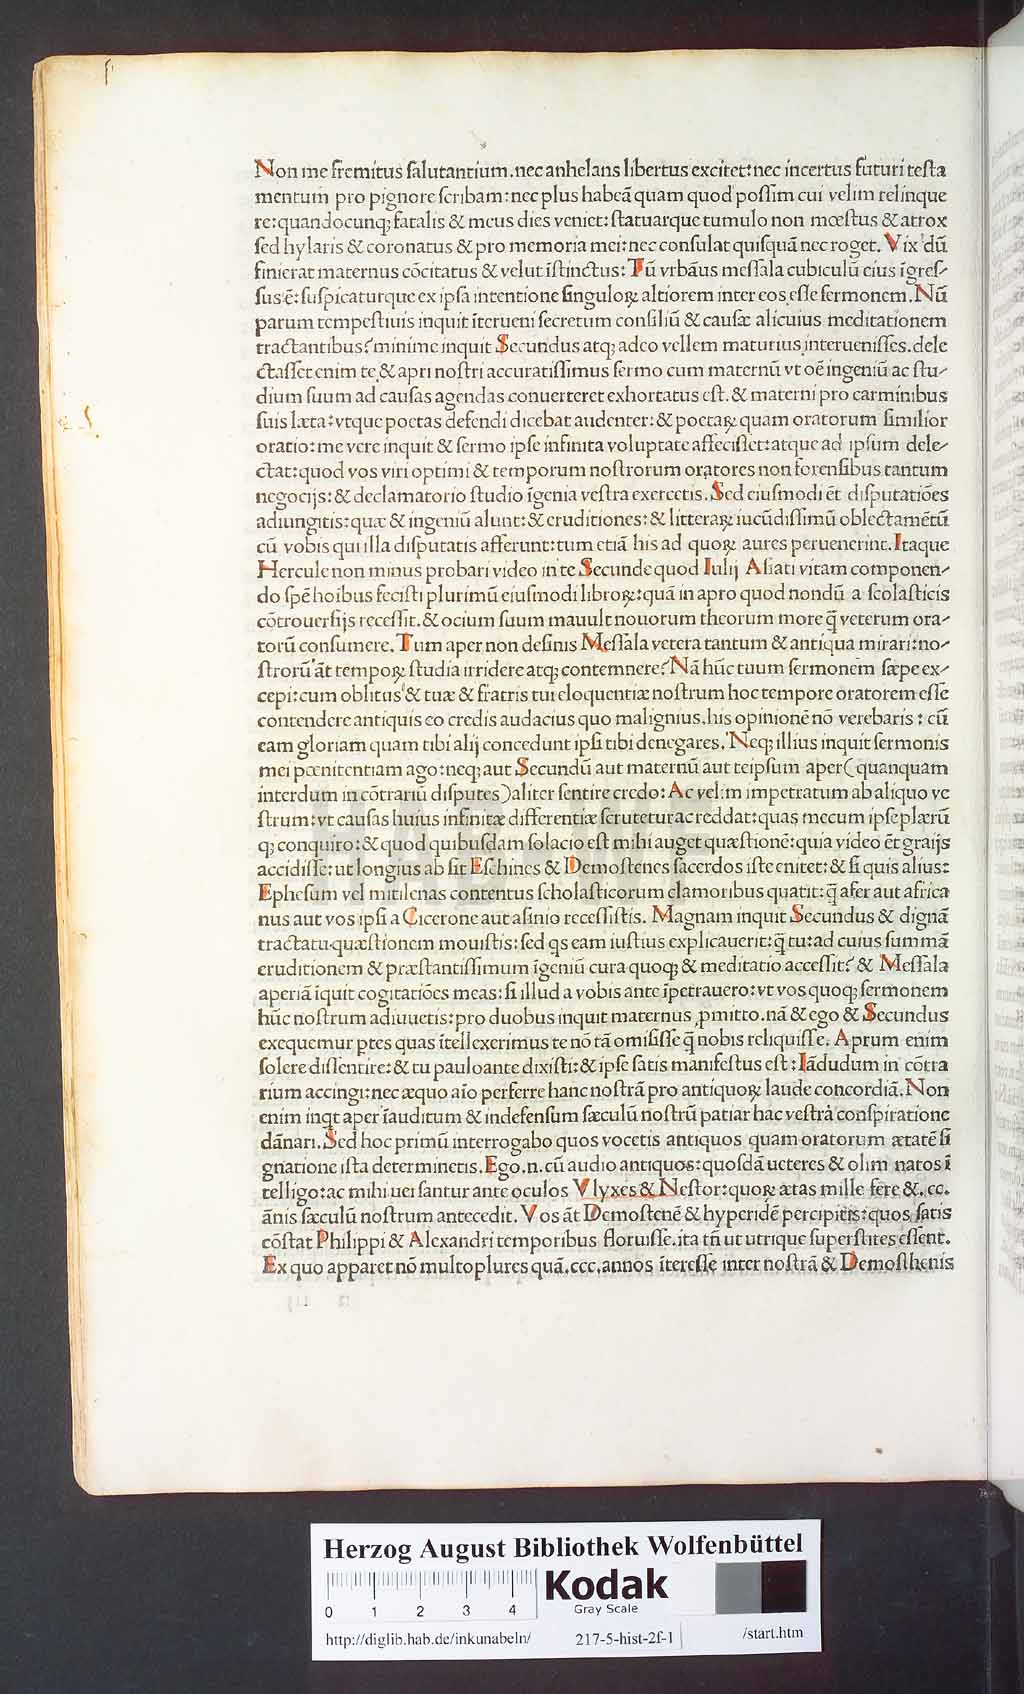 Non me fremitus salutantium.nec anhelans libertus excitet:nec incertus futuri testa
mentum pro pignore scribam:nec plus habeā quam quod possim cui velim relinque
re:quandocunqꝫ fatalis & meus dies veniet:statuarque tumulo non mœstus & atrox
sed hylaris & coronatus & pro memoria mei:nec consulat quisquā nec roget. Vix dū
finierat maternus cōcitatus & velut īstinctus: Tū vrbāus messala cubiculū eius īgres-
sus ē: suspicaturque ex ipsa intentione singuloꝝ altiorem inter eos esse sermonem. Nū
parum tempestiuis inquit īterueni secretum consiliū & causæ alicuius meditationem
tractantibus? minime inquit Secundus atqꝫ adeo vellem maturius interuenisses. dele
ctasset enim te & apri nostri accuratissimus sermo cum maternū vt oē ingeniū ac stu-
dium suum ad causas agendas conuerteret exhortatus est. & materni pro carminibus
suis læta: vtque poetas defendi dicebat audenter: & poetaꝝ quam oratorum similior
oratio: me vere inquit & sermo ipse infinita voluptate affecisset: atque ad ipsum dele-
ctat: quod vos viri optimi & temporum nostrorum oratores non forensibus tantum
negocijs: & declamatorio studio īgenia vestra exercetis. Sed eiusmodi ēt disputatiōes
adiungitis: quæ & ingeniū alunt: & eruditiones: & litteraꝝ iucūdissimū oblectamētū
cū vobis qui illa disputatis afferunt: tum etiā his ad quoꝝ aures peruenerint. Itaque
Hercule non minus probari video in te Secunde quod Iulij Asiati vitam componen-
do spē hoibus fecisti plurimū eiusmodi libroꝝ: quā in apro quod nondū a scolasticis
cōtrouersijs recessit. & ocium suum mauult nouorum theorum more q̄ veterum ora-
torū consumere. Tum aper non desinis Messala vetera tantum & antiqua mirari: no-
strorū āt tempoꝝ studia irridere atqꝫ contemnere? Nā hūc tuum sermonem sæpe ex-
cepi: cum oblitus & tuæ & fratris tui eloquentiæ nostrum hoc tempore oratorem essē
contendere antiquis eo credis audacius quo malignius. his opinionē nō verebaris: cū
eam gloriam quam tibi alij concedunt ipsi tibi denegares. Neqꝫ illius inquit sermonis
mei pœnitentiam ago: neqꝫ aut Secundū aut maternū aut teipsum aper (quanquam
interdum in cōtrariū disputes) aliter sentire credo: Ac velim impetratum ab aliquo ve
strum: vt causas huius infinitæ differentiæ scrutetur ac reddat: quas mecum ipse plærū
qꝫ conquiro: & quod quibusdam solacio est mihi auget quæstionē: quia video ēt graijs
accidisse: ut longius ab sit Eschines & Demostenes sacerdos iste enitet: & si quis alius:
Ephesum vel mitilenas contentus scholasticorum clamoribus quatit: q̄ afer aut africa
nus aut vos ipsi a Cicerone aut asinio recessistis. Magnam inquit Secundus & dignā
tractatu quæstionem mouistis: sed qs eam iustius explicauerit: q̄ tu: ad cuius summā
eruditionem & præstantissimum īgeniū cura quoqꝫ & meditatio accessit? & Messala
aperiā īquit cogitatiōes meas: si illud a vobis ante īpetrauero: vt vos quoqꝫ sermonem
hūc nostrum adiuuetis: pro duobus inquit maternus ꝓmitto. nā & ego & Secundus
exequemur ptes quas ītellexerimus te nō tā omisisse q̄ nobis reliquisse. Aprum enim
solere dissentire: & tu pauloante dixisti: & ipse satis manifestus est: Iādudum in cōtra
rium accingi: nec æquo aīo perferre hanc nostrā pro antiquoꝝ laude concordiā. Non
enim inqt aper īauditum & indefensum sæculū nostrū patiar hac vestrā conspiratione
dānari. Sed hoc primū interrogabo quos vocetis antiquos quam oratorum ætatē si
gnatione ista determinetis. Ego .n. cū audio antiquos: quosdā ueteres & olim natos ī
telligo: ac mihi uersantur ante oculos Vlyxes & Nestor: quoꝝ ætas mille fere &.cc.
ānis sæculū nostrum antecedit. Vos āt Demostenē & hyperidē percipitis: quos satis
cōstat Philippi & Alexandri temporibus floruisse. ita tn̄ ut utrique superstites essent.
Ex quo apparet nō multo plures quā.ccc.annos īteresse inter nostrā & Demosthenis
HAB-WF
Herzog August Bibliothek Wolfenbüttel
0 1 2 3 4
Kodak
Gray Scale
http://diglib.hab.de/inkunabeln/ 217-5-hist-2f-1 /start.htm